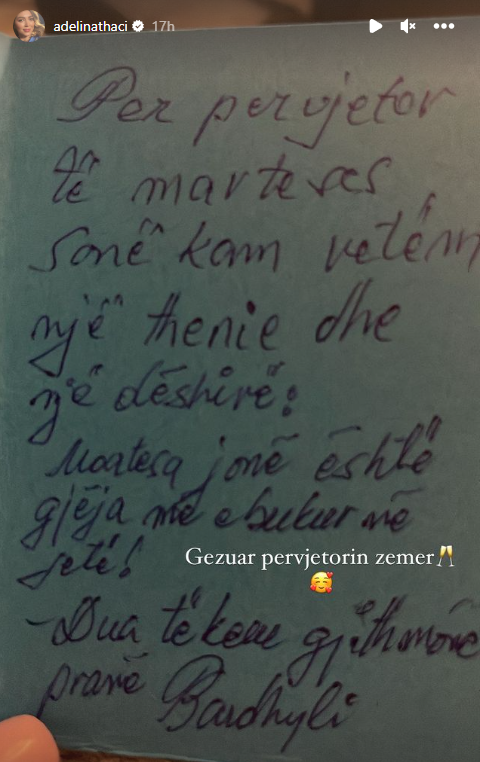 adelinathaci 17h
Per pervjetor
të marteses
sonë kam vetëm
një thenie dhe
një dëshirë:
Martesa jonë është
gjëja më e bukur në
jetë!
Gezuar pervjetorin zemer🥂
🥰
-Dua të kem gjithmonë
pranë Bardhyli